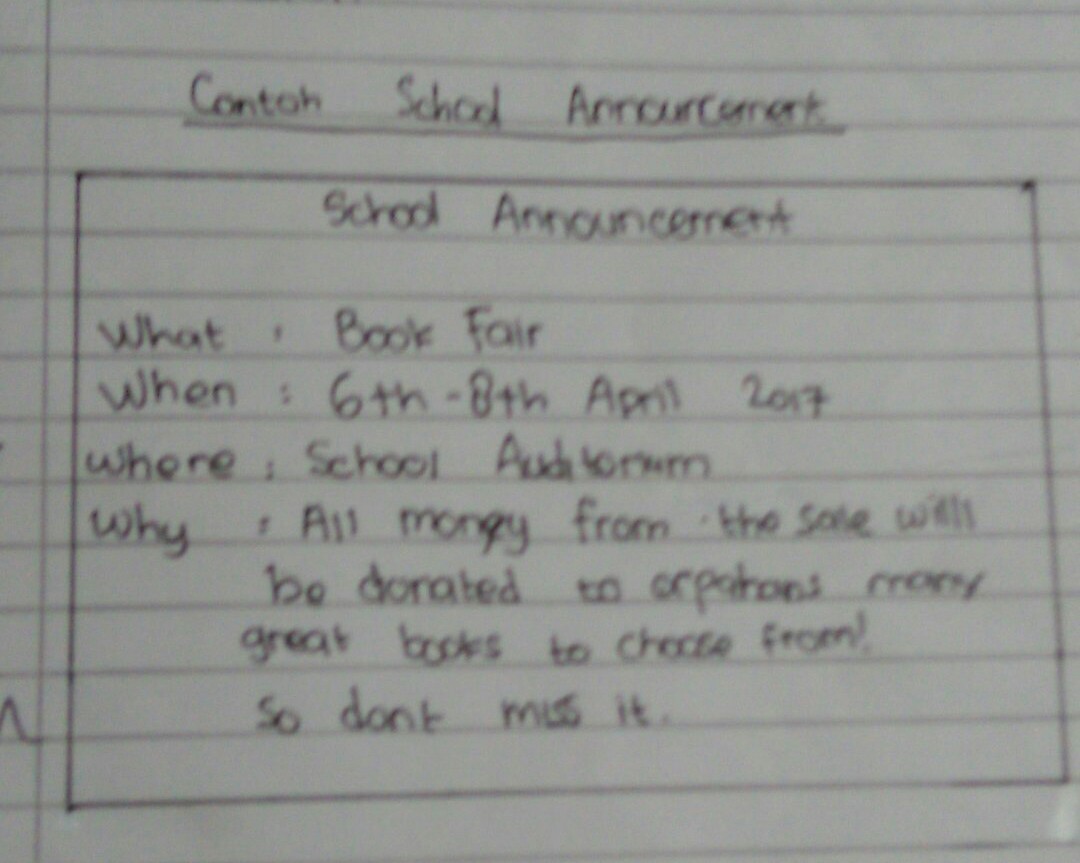 Contoh School Announcement
School Announcement
What : Book Fair
When : 6th - 8th April 2017
Where : School Auditorium
Why : All money from the sale will
be donated to orpahans many
great books to choose from!
So dont miss it.